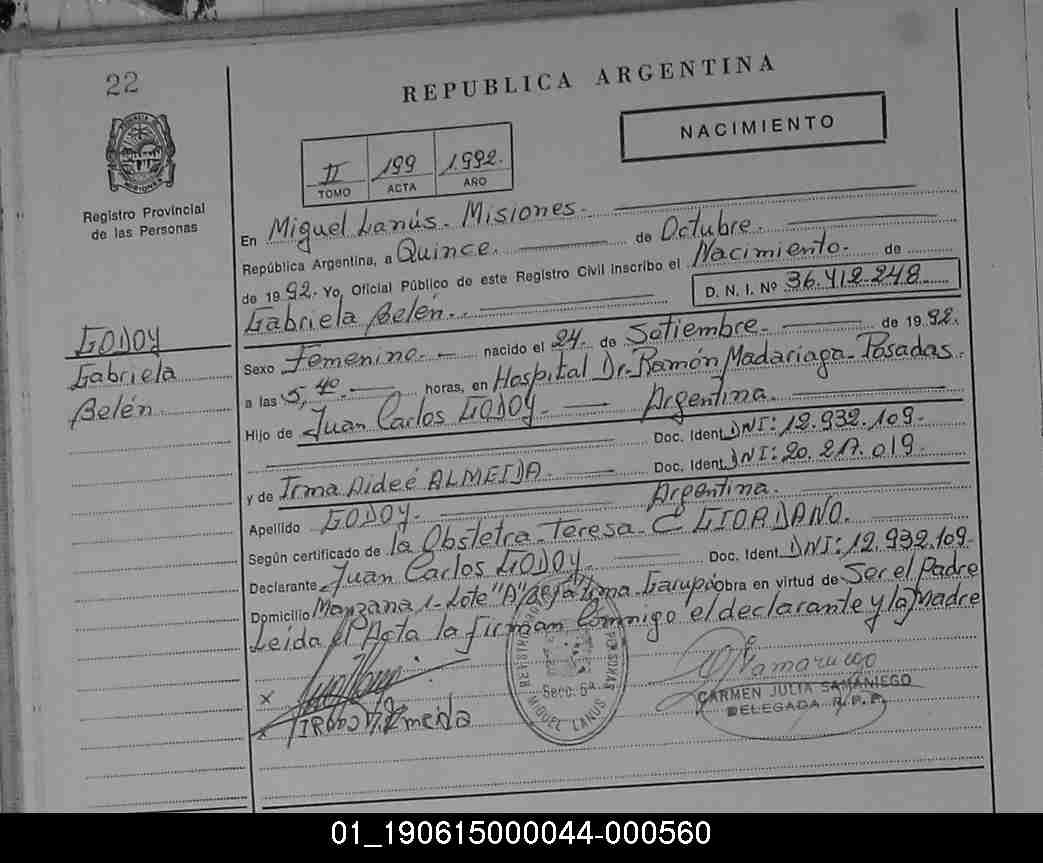 22
REPUBLICA ARGENTINA
NACIMIENTO
II 199 1.992.
TOMO ACTA AÑO
PROVINCIA DE MISIONES
Registro Provincial
de las Personas
En Miguel Lanús - Misiones.
República Argentina, a Quince. de Octubre.
de 1992. Yo, Oficial Público de este Registro Civil inscribo el Nacimiento. de
Gabriela Belén. D. N. I. Nº 36.412.248
GODOY
Gabriela
Belén
Sexo Femenino. nacido el 24. de Setiembre. de 1992.
a las 5,40. horas, en Hospital Dr. Ramón Madariaga - Posadas.
Hijo de Juan Carlos GODOY. Argentina.
Doc. Ident. DNI: 12.932.109.
y de Irma Aideé ALMEIDA. Doc. Ident. DNI: 20.217.019.
Apellido GODOY. Argentina.
Según certificado de la Obstetra - Teresa - C GIORDANO.
Declarante Juan Carlos GODOY. Doc. Ident. DNI: 12.932.109.
Domicilio Manzana 1 - Lote "A" Garupá obra en virtud de Ser el Padre
Leída el Acta la firman Conmigo el declarante y la Madre
x
x Almeida
REGISTRO PERSONAS
Secc. 5ª
MIGUEL LANUS
CARMEN JULIA SAMANIEGO
DELEGADA R.P.P.
01_190615000044-000560